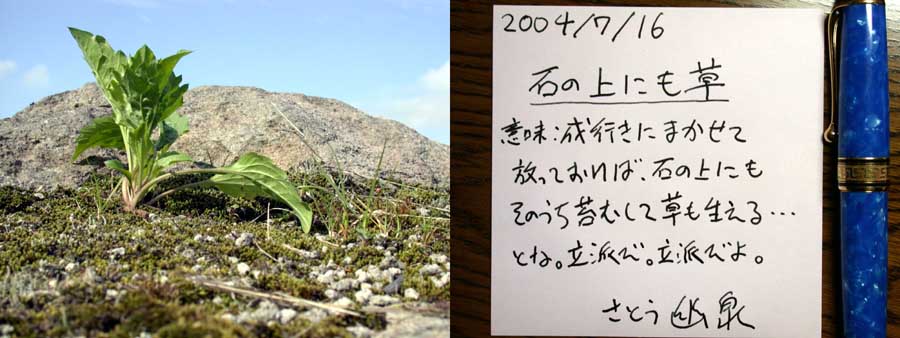 2004/7/16
石の上にも草
意味:成行きにまかせて
放っておけば、石の上にも
そのうち苔むして草も生える…
とね。立派だ。立派だよ。
さとう 幽泉